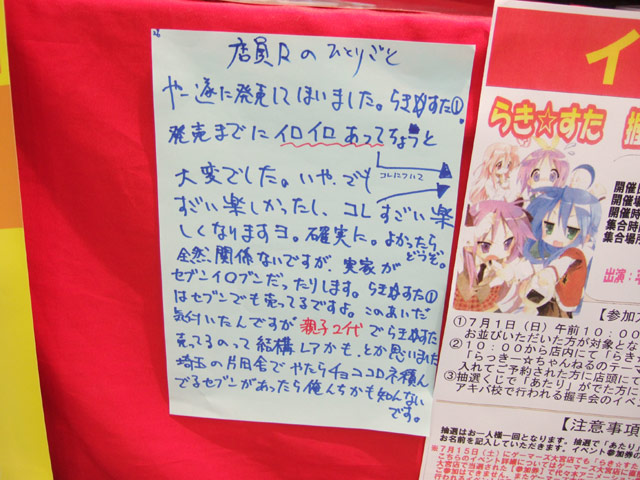 店員Rのひとりごと
やー遂に発売してはいました。らき☆すた①
発売までにイロイロあってちょっと
コレについて
大変でした。いや、でも
すごい楽しかったし、コレすごい楽
しくなりますヨ。確実に。よかったら
どうぞ。
全然関係ないですが、実家が
セブンイレブンだったりします。らき☆すた①
はセブンでも売ってるですよ。このあいだ
気付いたんですが親子2代でらき☆すた
売ってるのって結構レアかも、とか思いました
埼玉の片田舎でやたらチョココロネ積ん
でるセブンがあったら俺んちかも知んない
です。
イ
らき☆すた 握
開催
開催
開催時
集合時
集合場
出演:
【参加
①7月1日(日)午前10:00
お並びいただいた方が対象とな
②10:00から店内にて「らき
「らっきー☆ちゃんねるのテーマ
入れてご予約された方に店頭にて
③抽選くじで「あたり」がでた方に
アキバ校で行われる握手会のイベ
【注意事項
抽選はお一人様一回となります。
お名前を記入していただきます。イベント参加券の
※7月15日(土)にゲーマーズ大宮店でも「らき☆す
こちらのイベント詳細についてはゲーマーズ大宮店に
大宮店で当選された【参加券】で代々木アニメーション